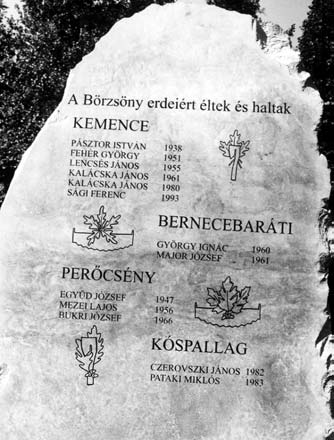 A Börzsöny erdeiért éltek és haltak
KEMENCE
PÁSZTOR ISTVÁN 1938
FEHÉR GYÖRGY 1951
LENCSÉS JÁNOS 1955
KALÁCSKA JÁNOS 1961
KALÁCSKA JÁNOS 1980
SÁGI FERENC 1993
BERNECEBARÁTI
GYÖRGY IGNÁC 1960
MAJOR JÓZSEF 1961
PERŐCSÉNY
EGYÜD JÓZSEF 1947
MEZEI LAJOS 1956
BUKRI JÓZSEF 1966
KÓSPALLAG
CZEROVSZKI JÁNOS 1982
PATAKI MIKLÓS 1983